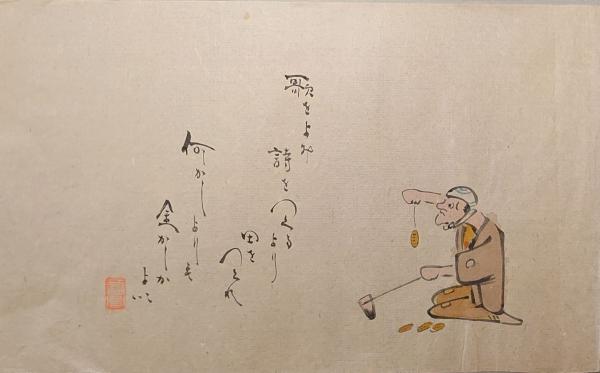 歌をよみ
詩をつくるより
田をつくれ
何かしよりも
金かしかよい